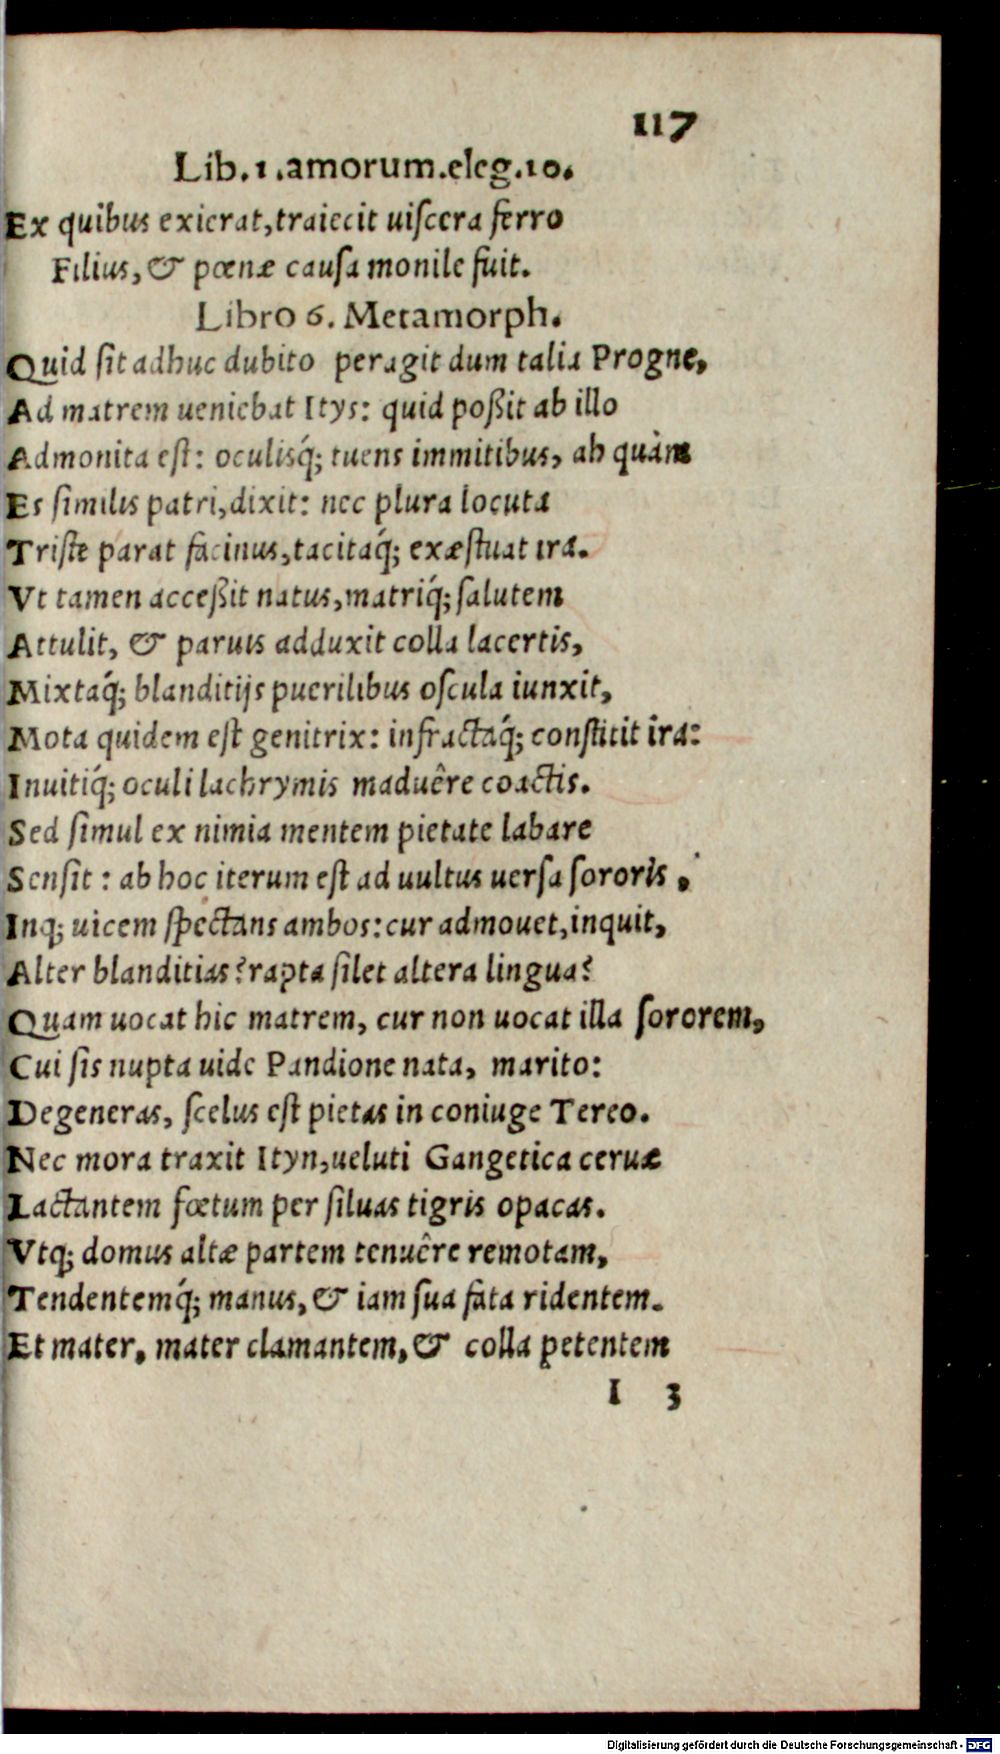 117
Lib.1.amorum.eleg.10.
Ex quibus exierat,traiecit uiſcera ferro
Filius, & pœnæ cauſa monile fuit.
Libro 6. Metamorph.
Quid ſit adhuc dubito peragit dum talia Progne,
Ad matrem ueniebat Itys: quid poßit ab illo
Admonita eſt: oculisq́; tuens immitibus, ah quàm
Es ſimilis patri,dixit: nec plura locuta
Triſte parat facinus,tacitaq́; exæſtuat ira.
Vt tamen acceßit natus,matriq́; ſalutem
Attulit, & paruis adduxit colla lacertis,
Mixtaq́; blanditijs puerilibus oſcula iunxit,
Mota quidem eſt genitrix: infractaq́; conſtitit ira:
Inuitiq́; oculi lachrymis maduêre coactis.
Sed ſimul ex nimia mentem pietate labare
Senſit : ab hoc iterum eſt ad uultus uerſa ſororis ,
Inq; uicem ſpectans ambos:cur admouet,inquit,
Alter blanditias?rapta ſilet altera lingua?
Quam uocat hic matrem, cur non uocat illa ſororem,
Cui ſis nupta uide Pandione nata, marito:
Degeneras, ſcelus eſt pietas in coniuge Tereo.
Nec mora traxit Ityn,ueluti Gangetica ceruæ
Lactantem fœtum per ſiluas tigris opacas.
Vtq; domus altæ partem tenuêre remotam,
Tendentemq́; manus, & iam ſua fata ridentem.
Et mater, mater clamantem, & colla petentem
I 3
Digitalisierung gefördert durch die Deutsche Forschungsgemeinschaft - DFG